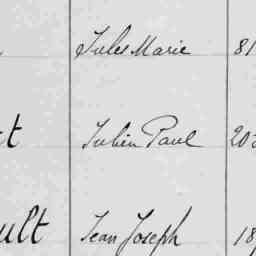 Jules Marie 81
t Julien Paul 20
ult Jean Joseph 18